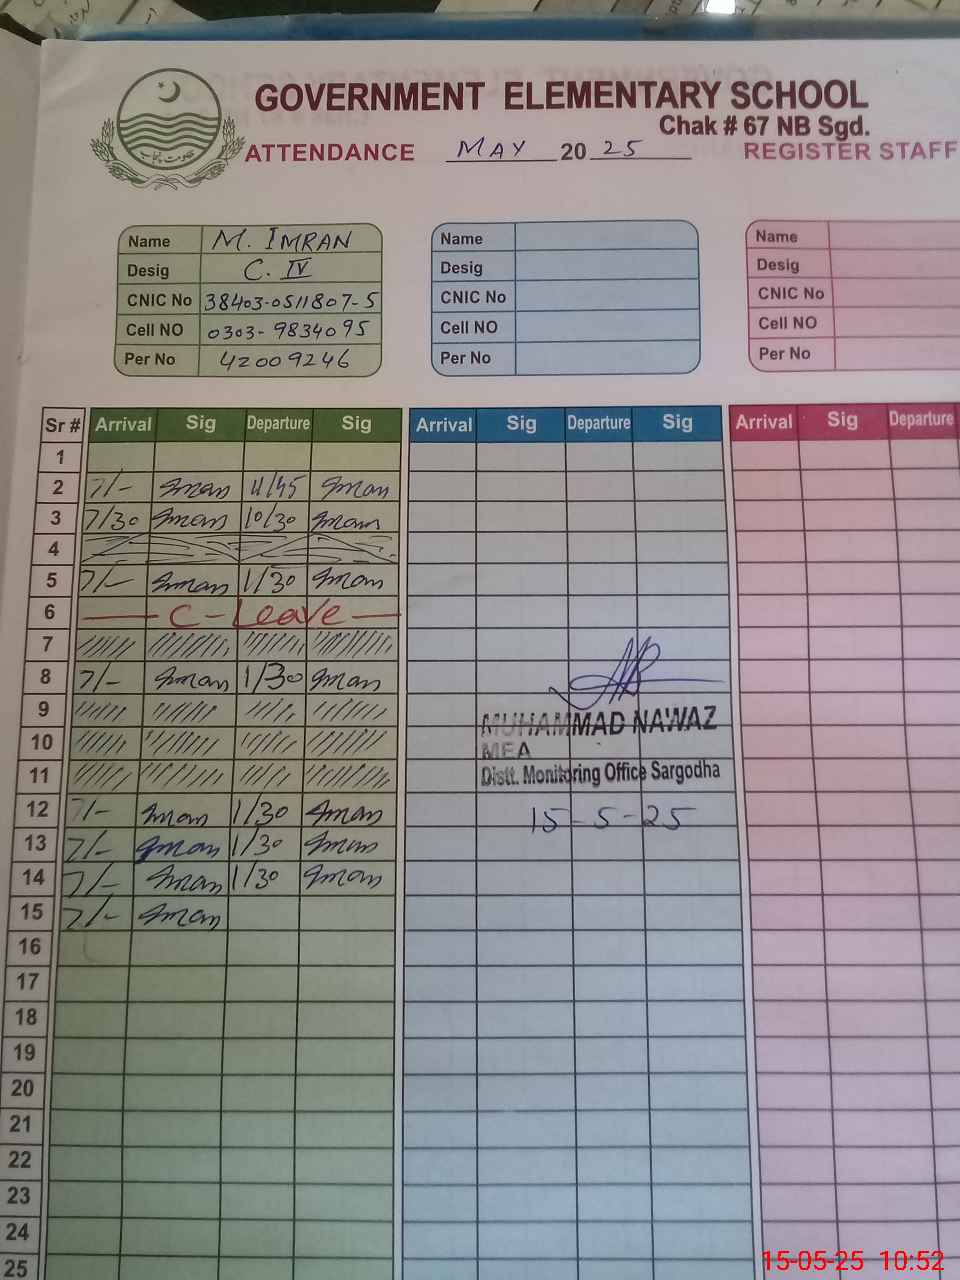 GOVERNMENT ELEMENTARY SCHOOL
Chak # 67 NB Sgd.
حکومت پنجاب
ATTENDANCE MAY 20 25 REGISTER STAFF
Name M. IMRAN
Desig C. IV
CNIC No 38403-0511807-5
Cell NO 0303-9834095
Per No 42009246
Name
Desig
CNIC No
Cell NO
Per No
Name
Desig
CNIC No
Cell NO
Per No
Sr # Arrival Sig Departure Sig Arrival Sig Departure Sig Arrival Sig Departure
1
2 7/- Imran 11/45 Imran
3 7/30 Imran 10/30 Imran
4
5 7/- Imran 1/30 Imran
6 C-Leave
7
8 7/- Imran 1/30 Imran
9
10
11
12 7/- Imran 1/30 Imran
13 7/- Imran 1/30 Imran
14 7/- Imran 1/30 Imran
15 7/- Imran
16
17
18
19
20
21
22
23
24
25
MUHAMMAD NAWAZ
MEA
Distt. Monitoring Office Sargodha
15-5-25
15-05-25 10:52